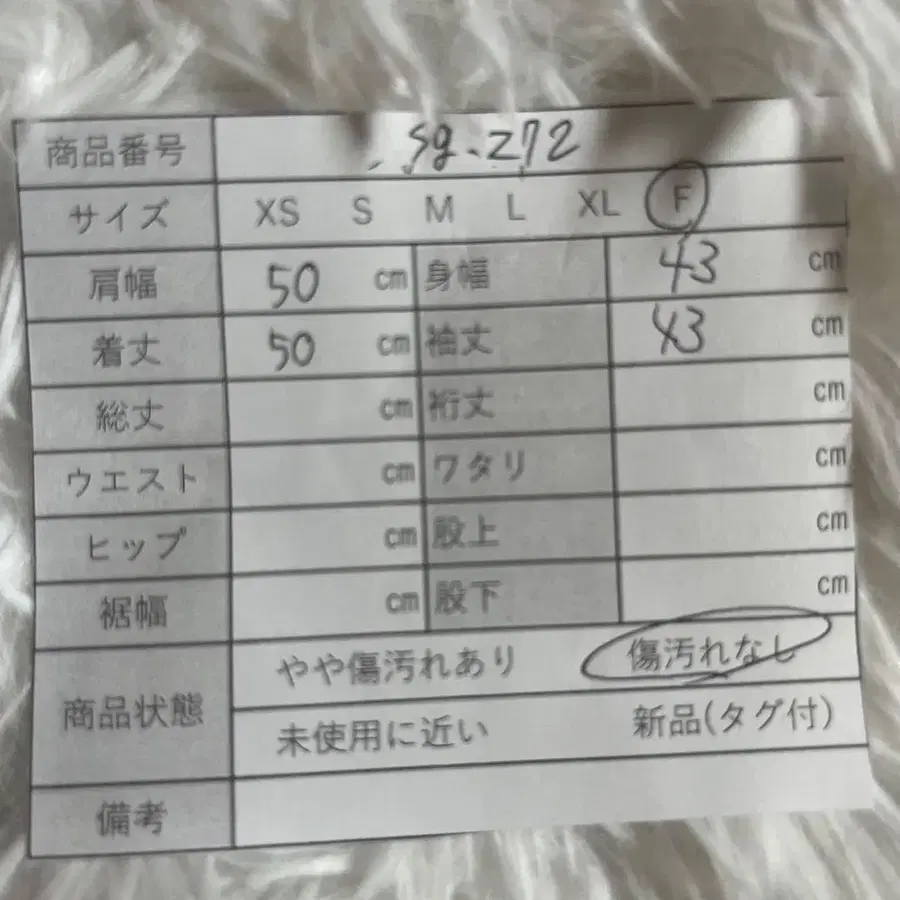 商品番号 sg.272
サイズ XS S M L XL F
肩幅 50 cm 身幅 43 cm
着丈 50 cm 袖丈 43 cm
総丈 cm 裄丈 cm
ウエスト cm ワタリ cm
ヒップ cm 股上 cm
裾幅 cm 股下 cm
やや傷汚れあり 傷汚れなし
商品状態
未使用に近い 新品(タグ付)
備考